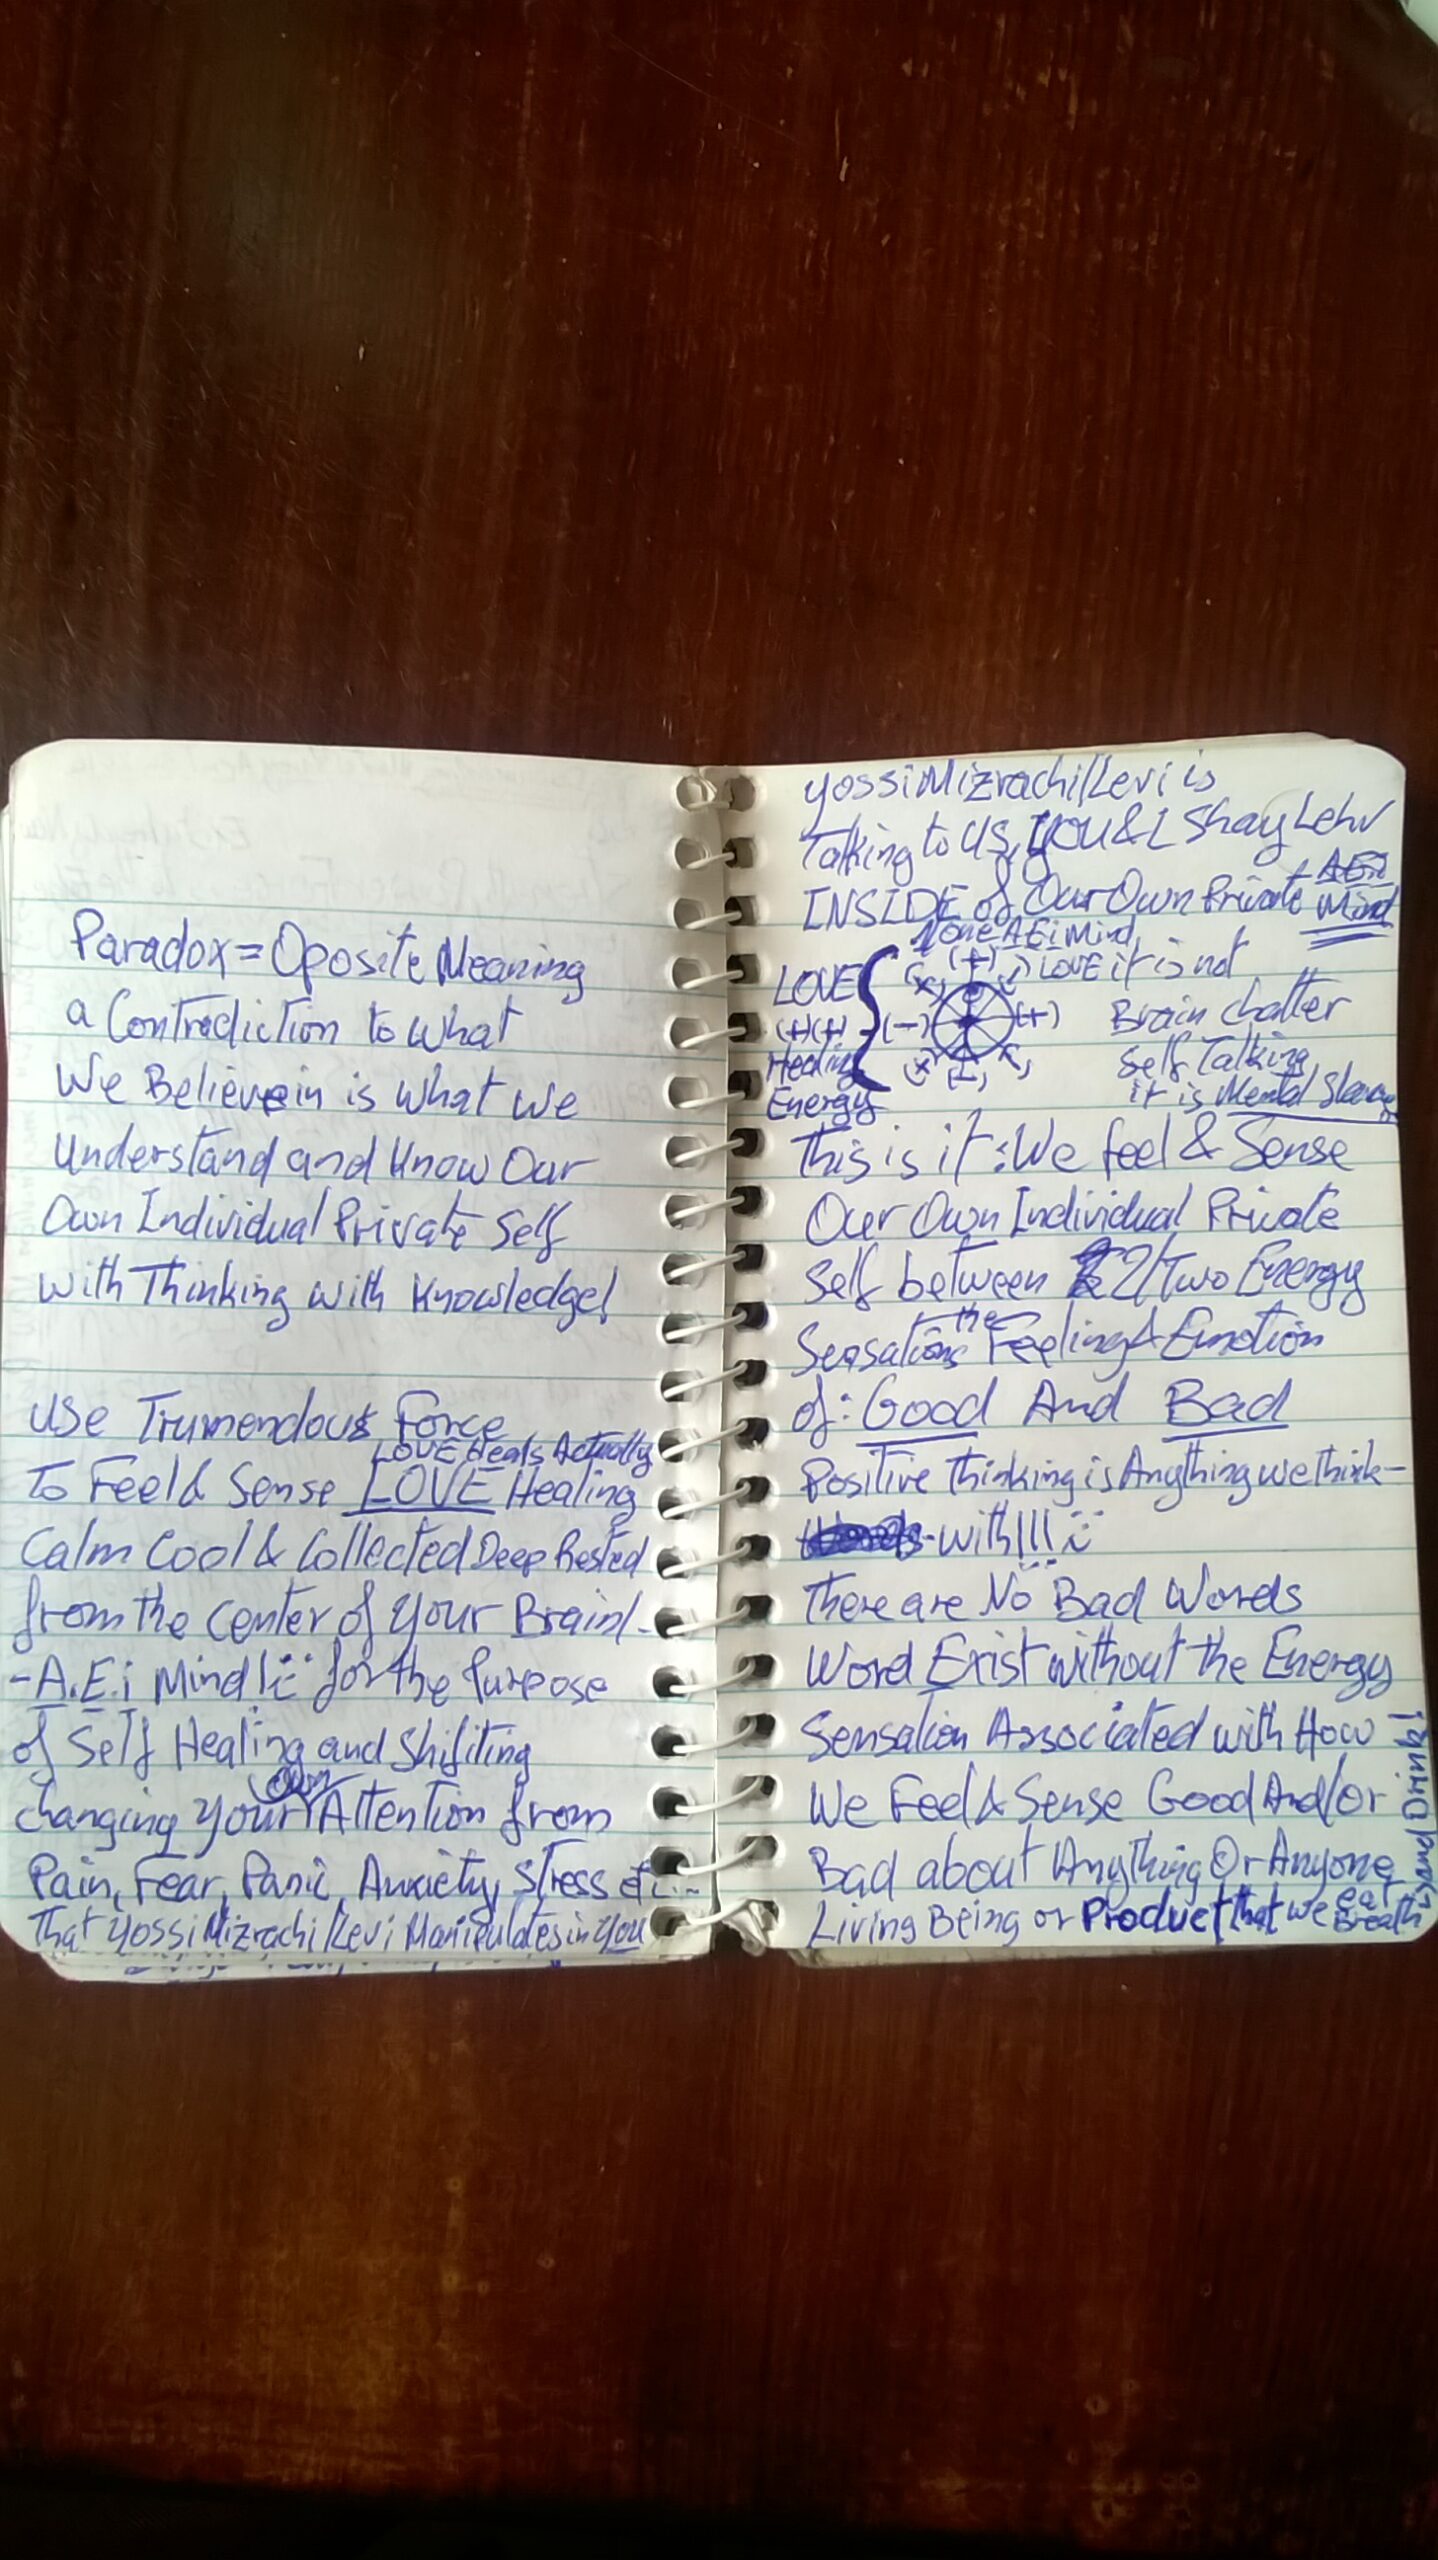 Paradox = Oposite Meaning
a Contradiction to what
We Believe in is what we
Understand and Know Our
Own Individual Private Self
with Thinking with Knowledge!
Use Trumendous Force
LOVE Heals Actually
To Feel & Sense LOVE Healing
Calm Cool & Collected Deep Rested
from the center of your Brain! -
- A.E.i Mind! for the Purpose
of Self Healing and Shifiting
own
changing your Attention from
Pain, Fear, Panic, Anxiety, Stress etc...
That Yossi Mizrachi/Levi Manipulates in You
Yossi Mizrachi/Levi is
Talking to US, YOU & I Shay Lehv
INSIDE of Our Own Private AEi Mind
None AEi Mind
LOVE (+)(+) Healing Energy
(+) (x) (-) (+) (x) (-)
LOVE it is not
Brain chatter
Self Talking
it is Mental Slavery
This is it: We feel & Sense
Our Own Individual Private
Self between 2/Two Energy
Sensations the Feeling & Emotion
of: Good And Bad
Positive Thinking is Anything we think -
- with!!!
There are No Bad Words
Word Exist without the Energy
Sensation Associated with How
We Feel & Sense Good And/or
Bad about Anything Or Anyone
Living Being or Product that we eat Breath
and Drink!